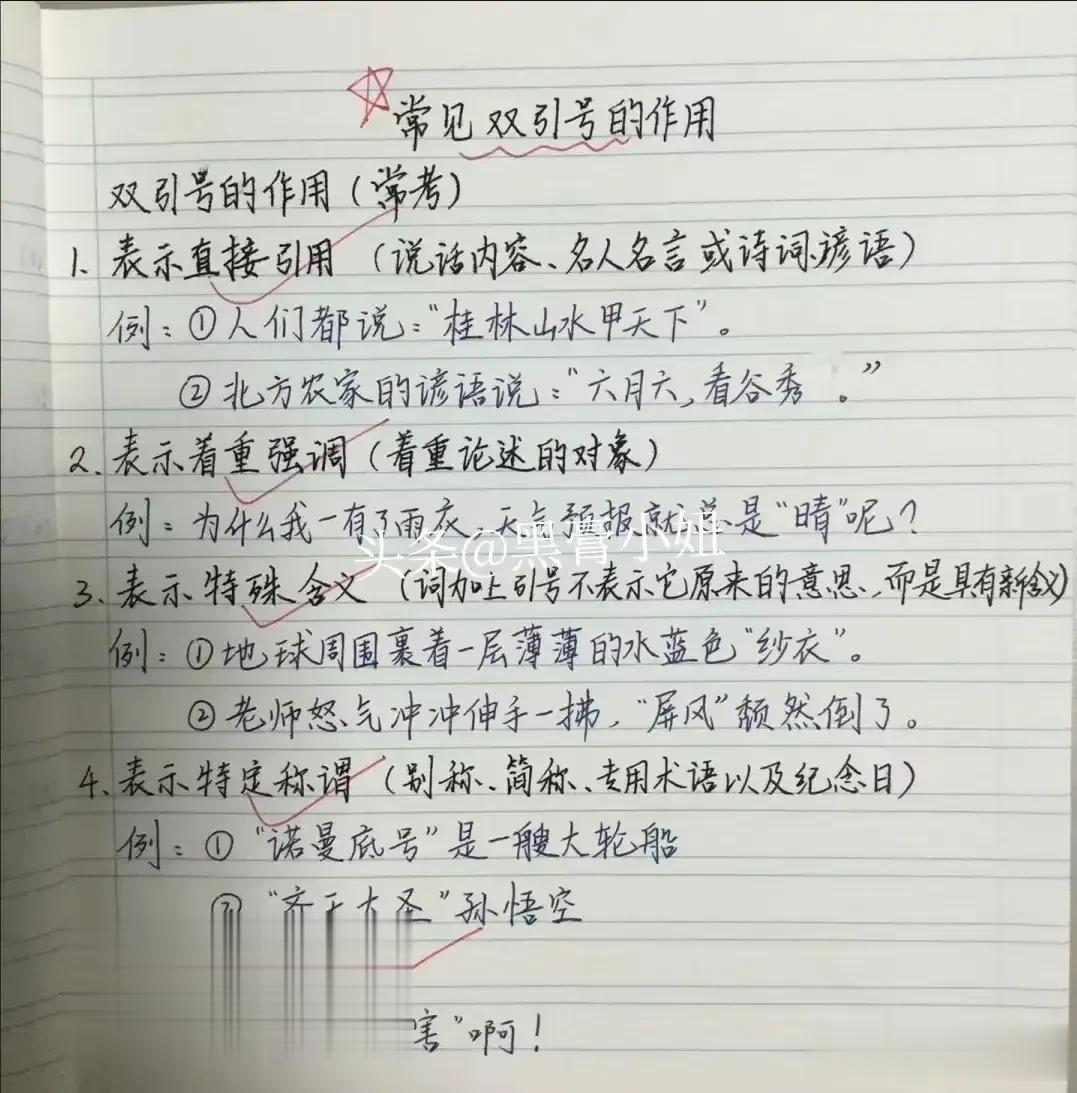 常见双引号的作用
双引号的作用（常考）
1、表示直接引用（说话内容、名人名言或诗词谚语）
例：①人们都说：“桂林山水甲天下”。
②北方农家的谚语说：“六月六，看谷秀。”
2、表示着重强调（着重论述的对象）
例：为什么我一有了雨衣，天气预报就总是“晴”呢？
头条@黑膏小妞
3、表示特殊含义（词加上引号不表示它原来的意思，而是具有新含义）
例：①地球周围裹着一层薄薄的水蓝色“纱衣”。
②老师怒气冲冲伸手一拂，“屏风”颓然倒了。
4、表示特定称谓（别称、简称、专用术语以及纪念日）
例：①“诺曼底号”是一艘大轮船
②“齐天大圣”孙悟空
害”啊！